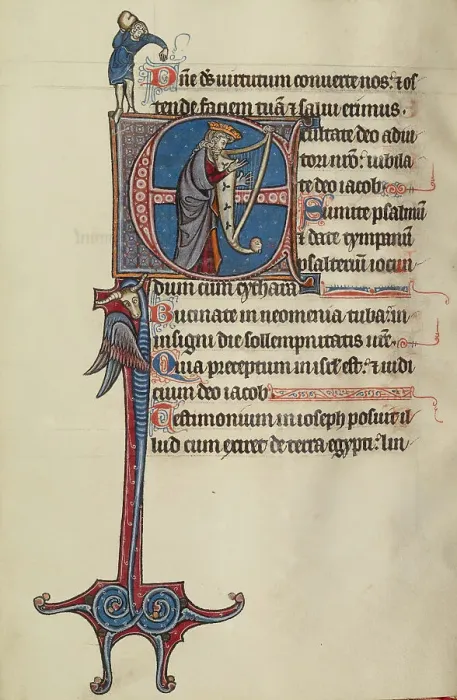 Dñe ds uirtutum conuerte nos: ⁊ os
tende faciem tuā ⁊ salui erimus.
Exultate deo adiu
tori nrō: iubila
te deo iacob
Sumite psalmū
⁊ date tympanū
psalteriū iocun
dum cum cythara
Bucinate in neomenia tuba: in
insigni die sollempnitatis urē.
Quia preceptum in isrl est: ⁊ iudi
cium deo iacob
Testimonium in ioseph posuit il
lud cum exiret de terra egypti: lin